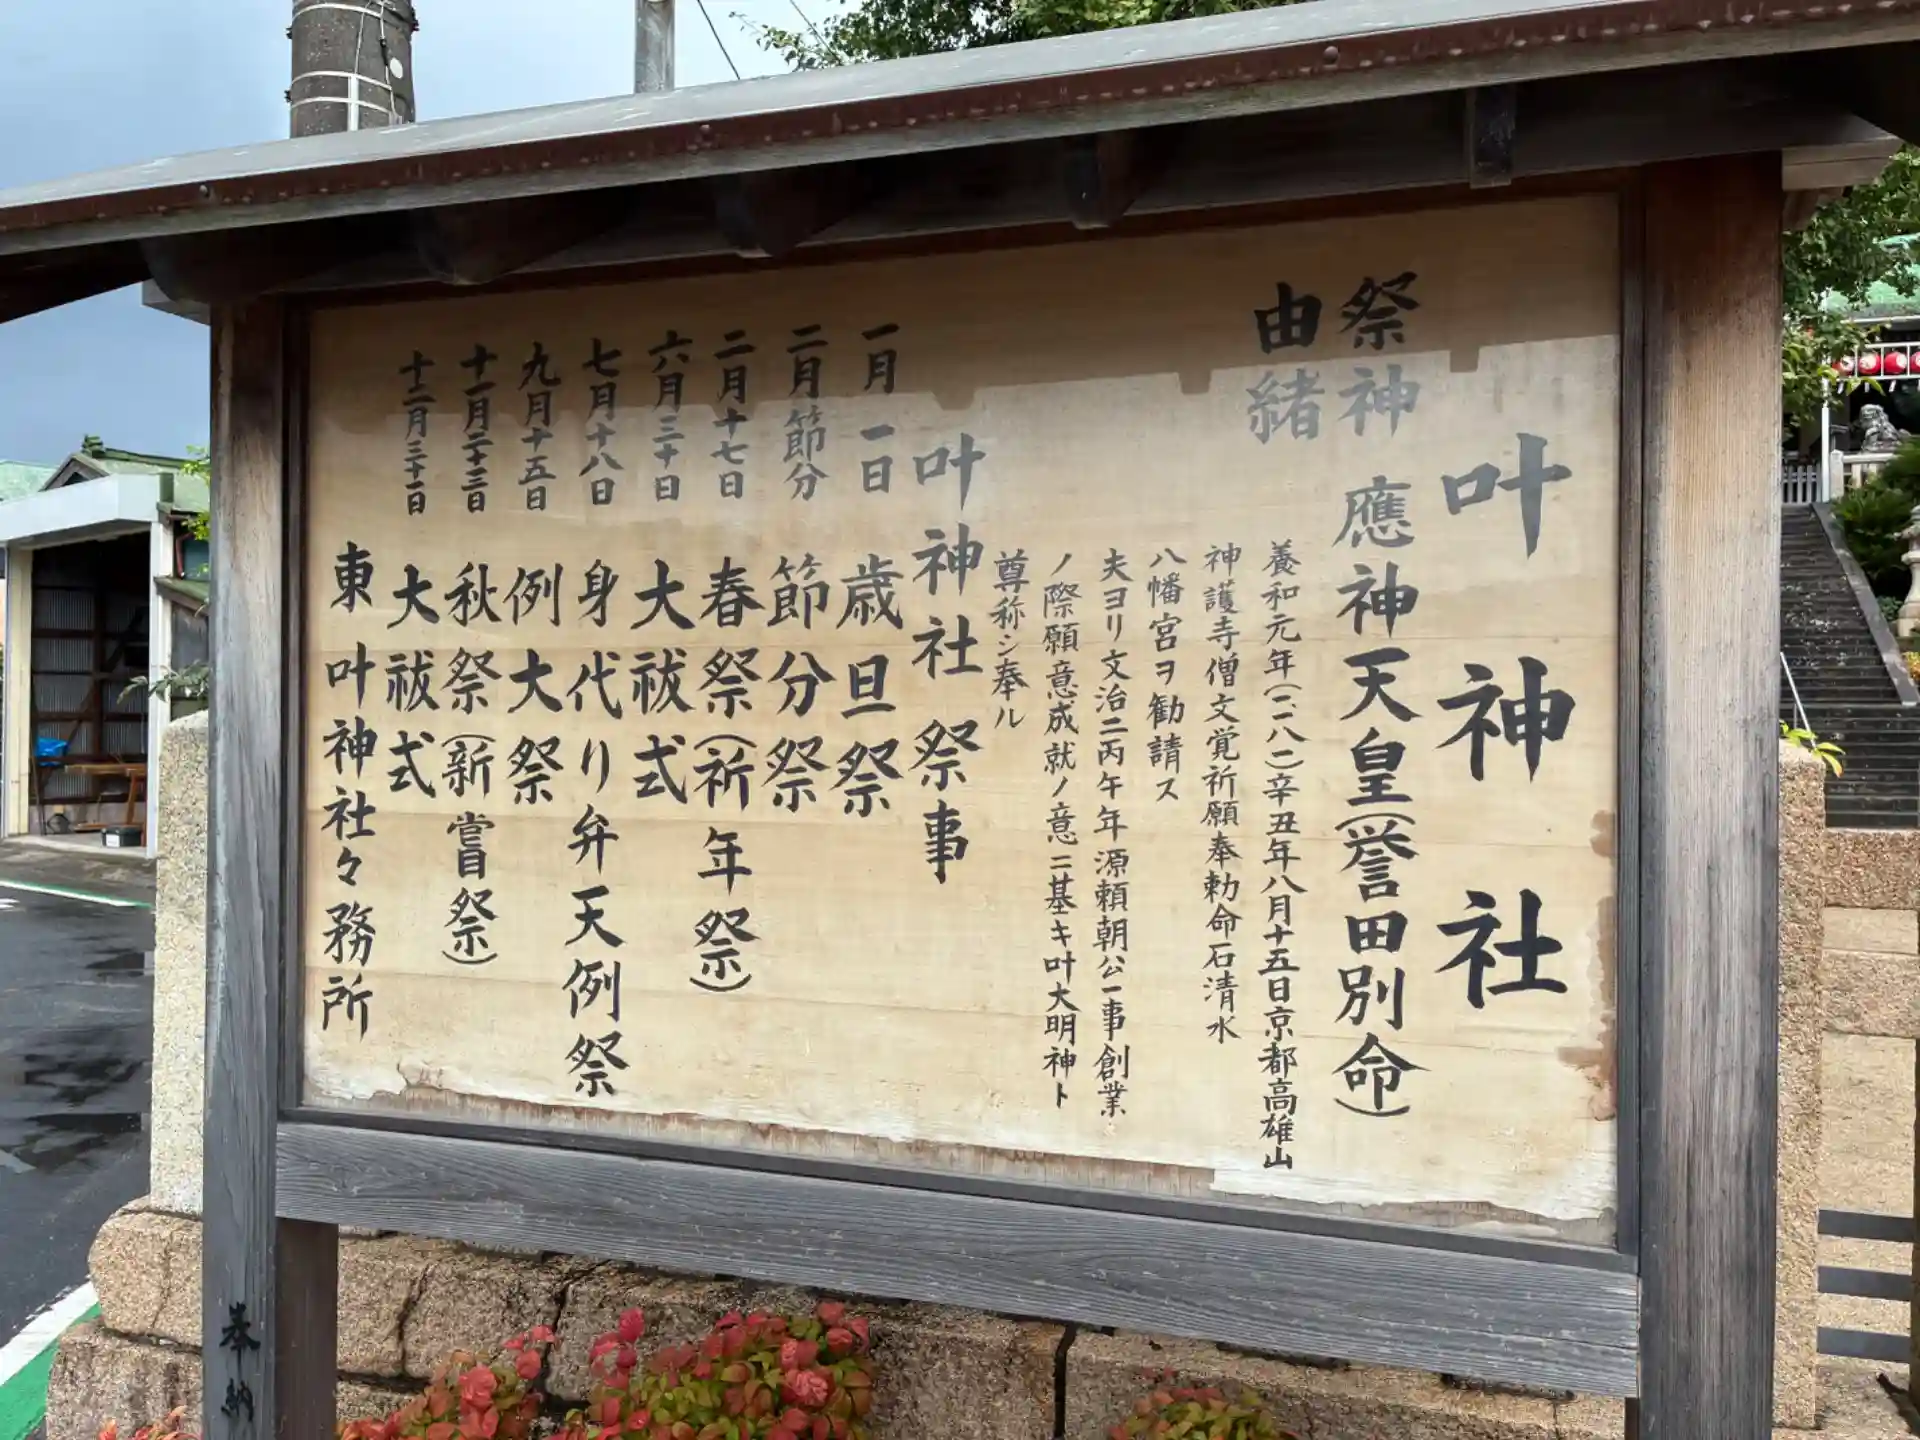 叶神社
祭神 應神天皇(誉田別命)
由緒
養和元年(一一八一)辛丑年八月十五日京都高雄山
神護寺僧文覚祈願奉勅命石清水
八幡宮ヲ勧請ス
夫ヨリ文治二丙午年源頼朝公一事創業
ノ際願意成就ノ意ニ基キ叶大明神ト
尊称シ奉ル
叶神社祭事
一月一日 歳旦祭
二月節分 節分祭
二月十七日 春祭(祈年祭)
六月三十日 大祓式
七月十八日 身代り弁天例祭
九月十五日 例大祭
十一月二十三日 秋祭(新嘗祭)
十二月三十一日 大祓式
東叶神社々務所
奉納